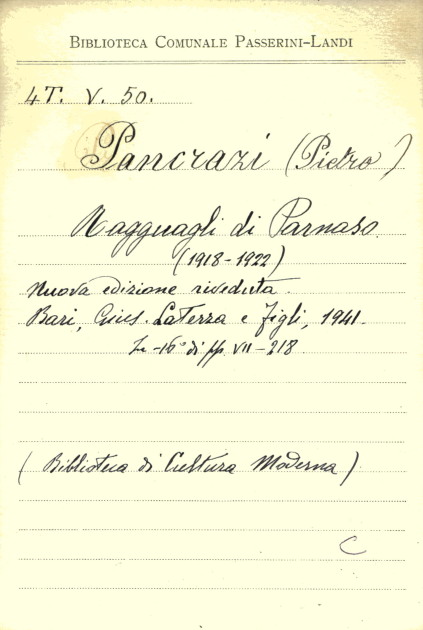 BIBLIOTECA COMUNALE PASSERINI-LANDI
4T. V. 50.
Pancrazi (Pietro)
Ragguagli di Parnaso
(1918-1922)
Nuova edizione riveduta.
Bari, Gius. Laterza e Figli, 1941.
In-16° di pp. VII-218
(Biblioteca di Cultura Moderna)
C